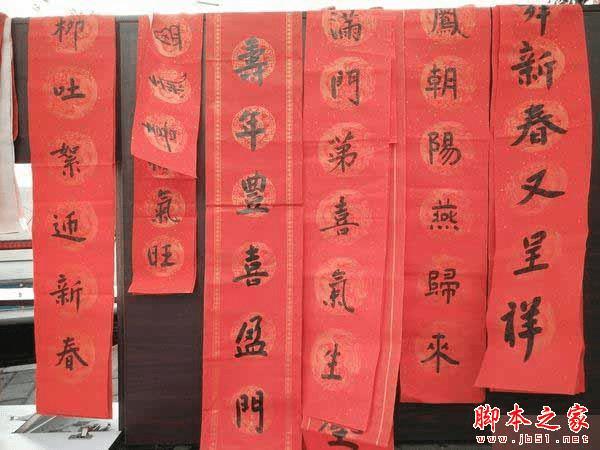 柳吐絮迎新春
氣旺
壽年豊喜盈門
滿門第喜氣生
鳳朝陽燕歸來
新春又呈祥
脚本之家
www.jb51.net